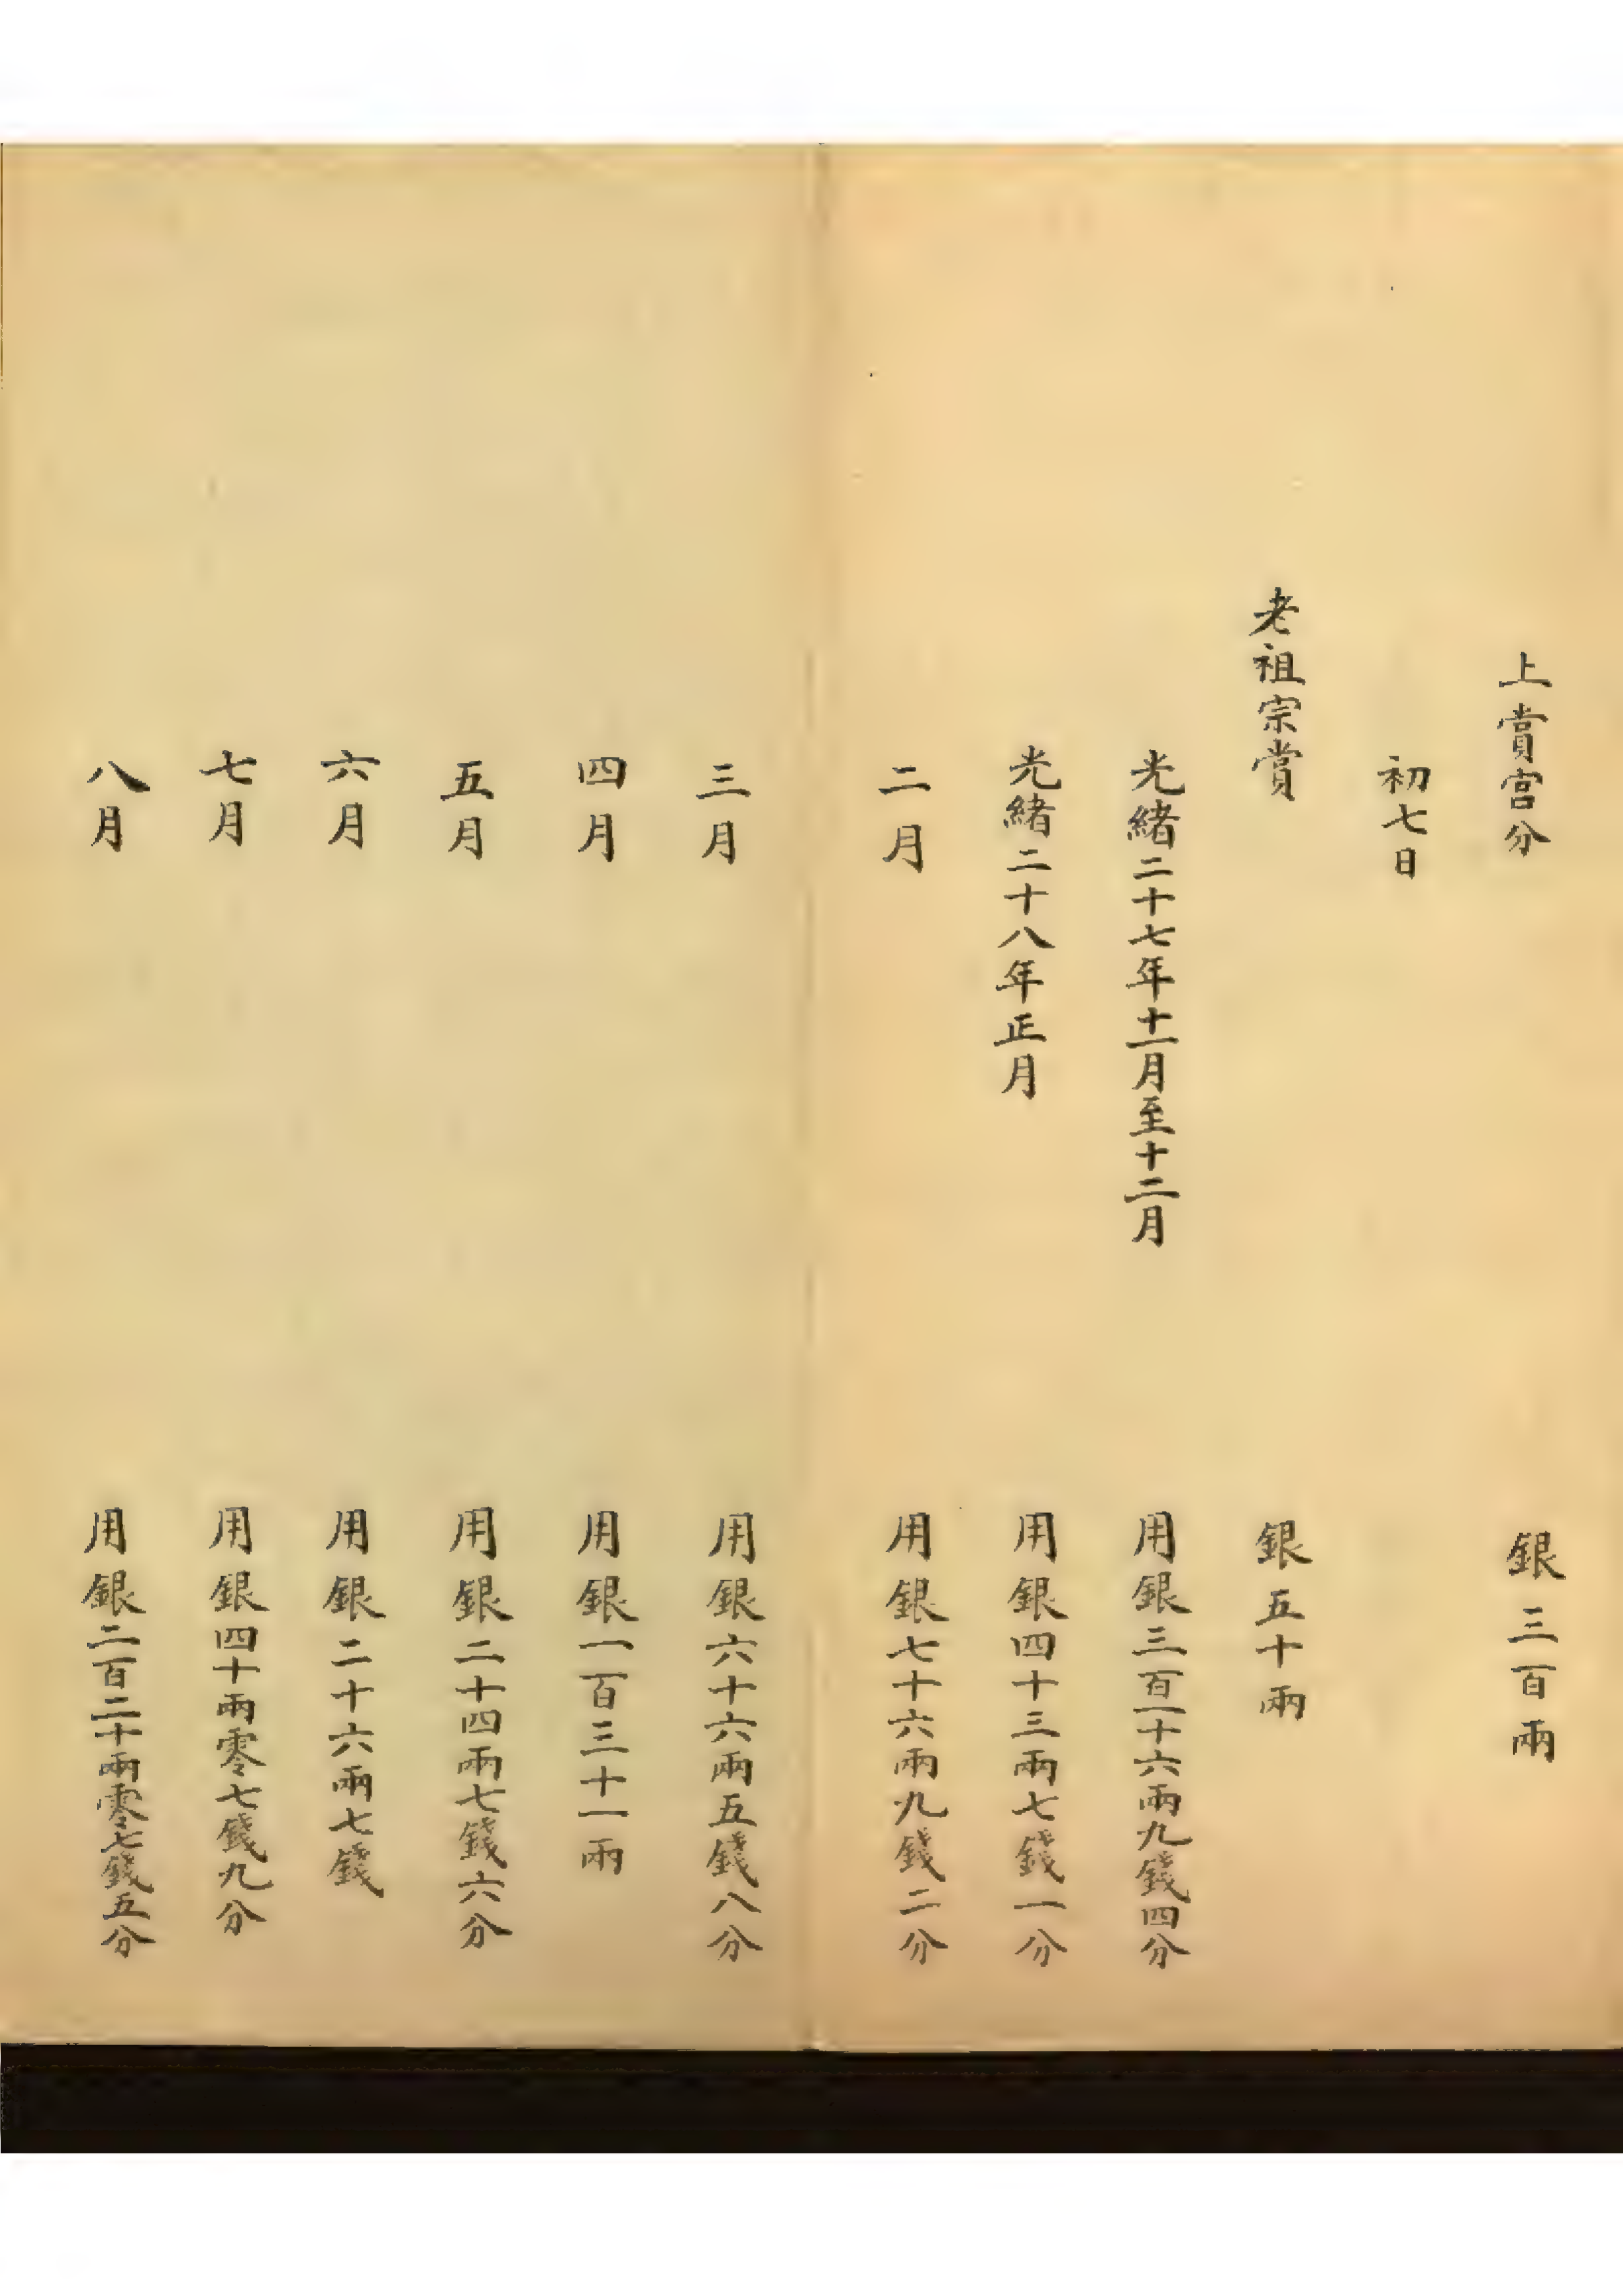 上賞宮分 銀三百兩
初七日
老祖宗賞 銀五十兩
光緒二十七年十一月至十二月 用銀三百一十六兩九錢四分
光緒二十八年正月 用銀四十三兩七錢一分
二月 用銀七十六兩九錢二分
三月 用銀六十六兩五錢八分
四月 用銀一百三十一兩
五月 用銀二十四兩七錢六分
六月 用銀二十六兩七錢
七月 用銀四十兩零七錢九分
八月 用銀二百二十兩零七錢五分